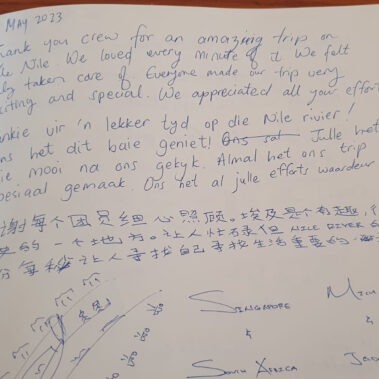 MAY 2023
Thank you crew for an amazing trip on
the Nile. We loved every minute of it. We felt
taken care of. Everyone made our trip very
exciting and special. We appreciated all your effort
Dankie vir 'n lekker tyd op die Nile rivier!
Ons het dit baie geniet! Ons sat Julle het
mooi na ons gekyk. Almal het ons trip
spesiaal gemaak. Ons het al julle efforts waardeer
谢每个团员细心照顾。埃及是个有趣,
史的一个地方。让人忙碌但 NILE RIVER 的
每秒让人寻找自己寻找生活重要的
SINGAPORE
&
SOUTH AFRICA
&